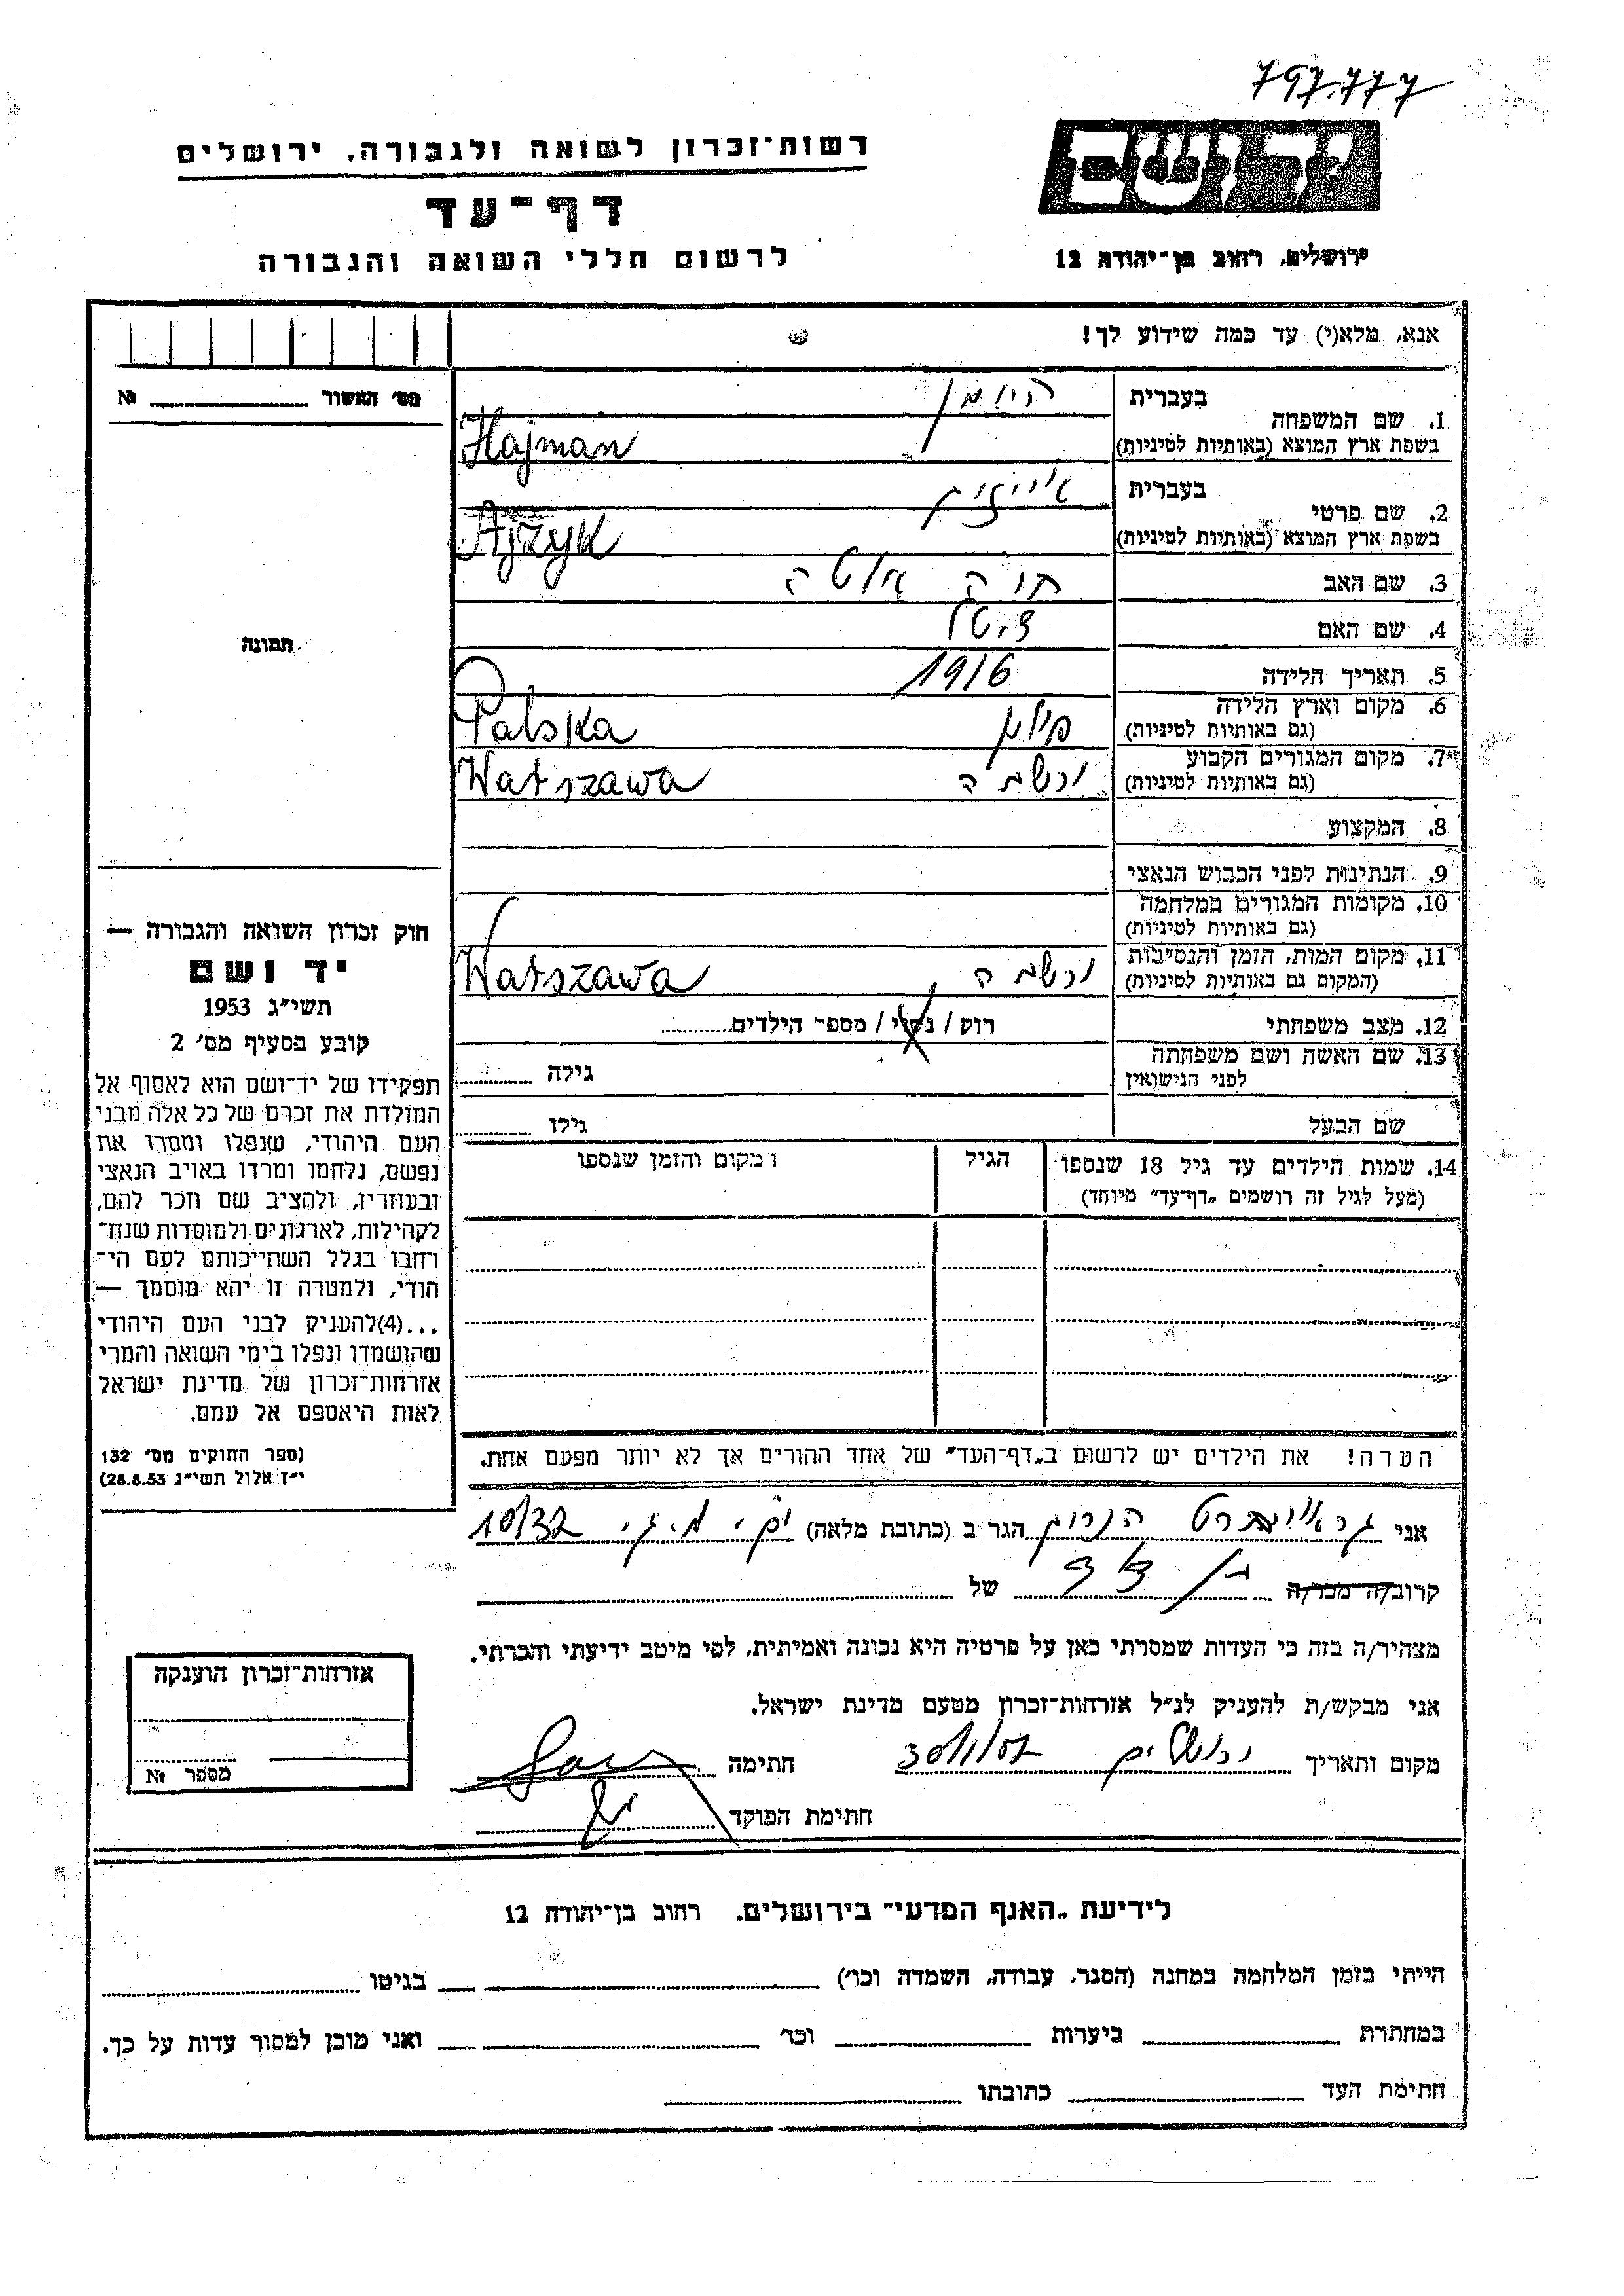 797.777
יד ושם
ירושלים, רחוב בן־יהודה 12
רשות־זכרון לשואה ולגבורה, ירושלים
דף־עד
לרשום חללי השואה והגבורה
אנא, מלא(י) עד כמה שידוע לך!
מס׳ האשור № 
בעברית היימן
1. שם המשפחה
בשפת ארץ המוצא (באותיות לטיניות) Hajman
בעברית אייזיק
2. שם פרטי
בשפת ארץ המוצא (באותיות לטיניות) Ajzyk
3. שם האב
4. שם האם
5. תאריך הלידה 1916
6. מקום וארץ הלידה
(גם באותיות לטיניות) פולין Polska
7. מקום המגורים הקבוע
(גם באותיות לטיניות) ורשה Warszawa
8. המקצוע
9. הנתינות לפני הכבוש הנאצי
10. מקומות המגורים במלחמה
(גם באותיות לטיניות)
11. מקום המות, הזמן והנסיבות
(המקום גם באותיות לטיניות) ורשה Warszawa
12. מצב משפחתי רוק / נשוי / מספר הילדים
13. שם האשה ושם משפחתה
לפני הנישואין גילה
שם הבעל גילו
14. שמות הילדים עד גיל 18 שנספו הגיל ומקום והזמן שנספו
(מעל לגיל זה רושמים „דף־עד״ מיוחד)
הערה! את הילדים יש לרשום ב„דף־העד״ של אחד ההורים אך לא יותר מפעם אחת.
תמונה
חוק זכרון השואה והגבורה —
יד ושם
תשי״ג 1953
קובע בסעיף מס׳ 2
תפקידו של יד־ושם הוא לאסוף אל
המולדת את זכרם של כל אלה מבני
העם היהודי, שנפלו ומסרו את
נפשם, נלחמו ומרדו באויב הנאצי
ובעוזריו, ולהציב שם וזכר להם,
לקהילות, לארגונים ולמוסדות שנח־
רחבו בגלל השתייכותם לעם הי־
הודי, ולמטרה זו יהא מוסמך —
...(4)להעניק לבני העם היהודי
שהושמדו ונפלו בימי השואה והמרי
אזרחות־זכרון של מדינת ישראל
לאות היאספם אל עמם.
(ספר החוקים מס׳ 132
י״ז אלול תשי״ג 28.8.53)
אני הגר ב (כתובת מלאה) 10/32
קרוב/ה מכר/ה של
מצהיר/ה בזה כי העדות שמסרתי כאן על פרטיה היא נכונה ואמיתית, לפי מיטב ידיעתי והכרתי.
אני מבקש/ת להעניק לנ״ל אזרחות־זכרון מטעם מדינת ישראל.
מקום ותאריך ירושלים חתימה
חתימת הפוקד
אזרחות־זכרון הוענקה
מספר №
לידיעת „האגף המדעי״ בירושלים, רחוב בן־יהודה 12
הייתי בזמן המלחמה במחנה (הסגר, עבודה, השמדה וכו׳) בגיטו
במחתרת ביערות וכו׳ ואני מוכן למסור עדות על כך.
חתימת העד כתובתו